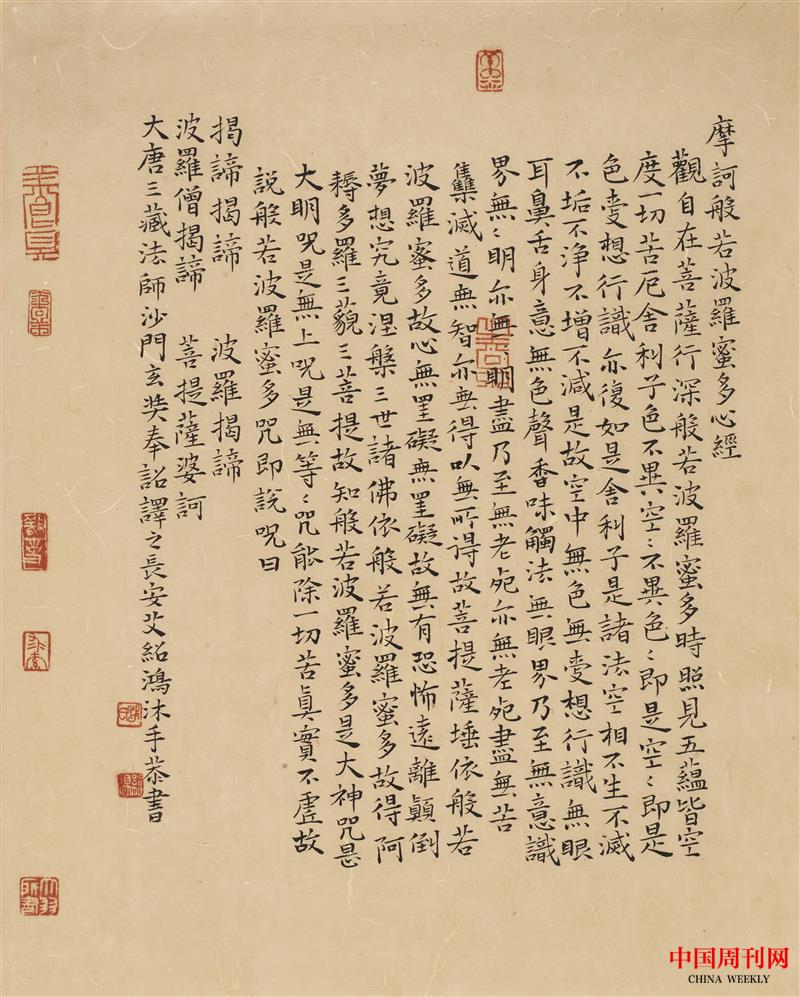 摩訶般若波羅蜜多心經
觀自在菩薩行深般若波羅蜜多時照見五蘊皆空
度一切苦厄舍利子色不異空〻不異色〻即是空〻即是
色受想行識亦復如是舍利子是諸法空相不生不滅
不垢不净不增不減是故空中無色無受想行識無眼
耳鼻舌身意無色聲香味觸法無眼界乃至無意識
界無〻明亦無〻明盡乃至無老死亦無老死盡無苦
集滅道無智亦無得以無所得故菩提薩埵依般若
波羅蜜多故心無罣礙無罣礙故無有恐怖遠離顛倒
夢想究竟涅槃三世諸佛依般若波羅蜜多故得阿
耨多羅三藐三菩提故知般若波羅蜜多是大神咒是
大明咒是無上咒是無等〻咒能除一切苦真實不虛故
說般若波羅蜜多咒即說咒曰
揭諦揭諦 波羅揭諦
波羅僧揭諦 菩提薩婆訶
大唐三藏法師沙門玄奘奉詔譯之長安艾紹鴻沐手恭書
中国周刊网
CHINA WEEKLY